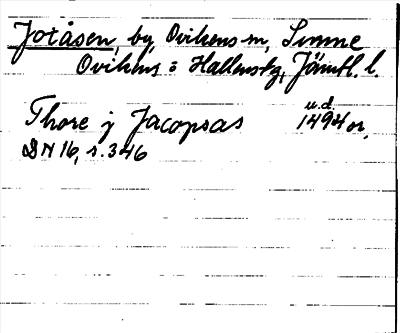 Jotåsen, by, Ovikens sn, Sunne
Ovikens o Hallens tg, Jämtl. l.
Thore j Jacopsas u.d. 1494 or.
DN 16, s. 346